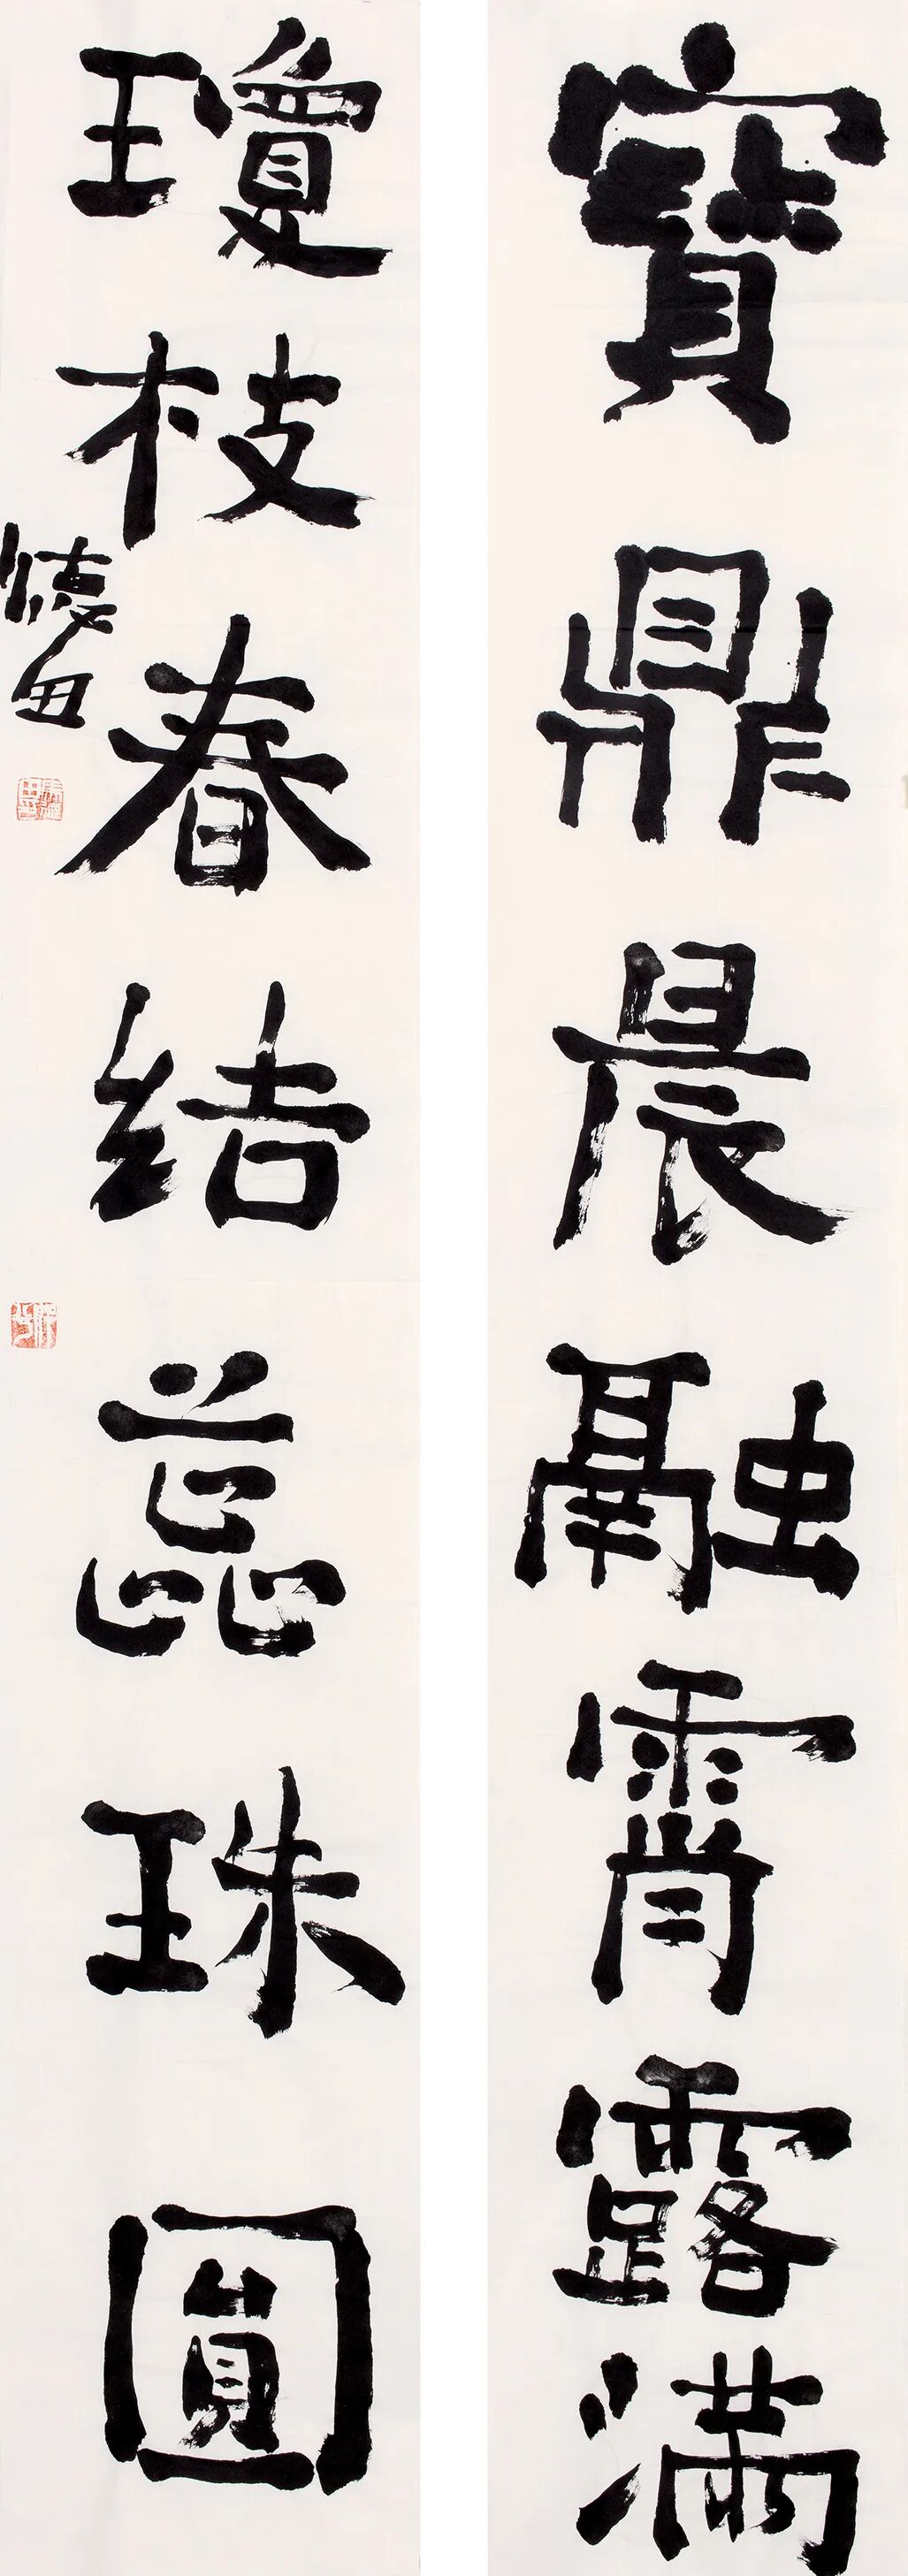 寶鼎晨融霄露滿
瓊枝春結蕊珠圓
德田